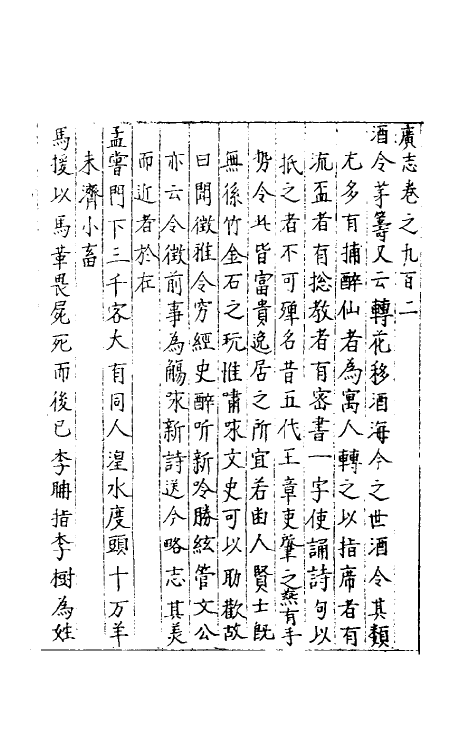 廣志卷之九百二
酒令芧籌又云轉花移酒海今之世酒令其類
尤多有捕醉仙者為寓人轉之以指席者有
流盃者有捴教者有密書一字使誦詩句以
抵之者不可殫名昔五代王章吏肇之燕有手
勢令此皆富貴逸居之所宜若幽人賢士既
無係竹金石之玩惟嘯咏文史可以助歡故
曰閒徵雅令穷經史醉听新吟勝絃管文公
亦云令徵前事為觴咏新詩送今略志其美
而近者於在
孟嘗門下三千客大有同人湟水度頭十万羊
未濟小畜
馬援以馬革畏屍死而後已李耼指李樹為姓